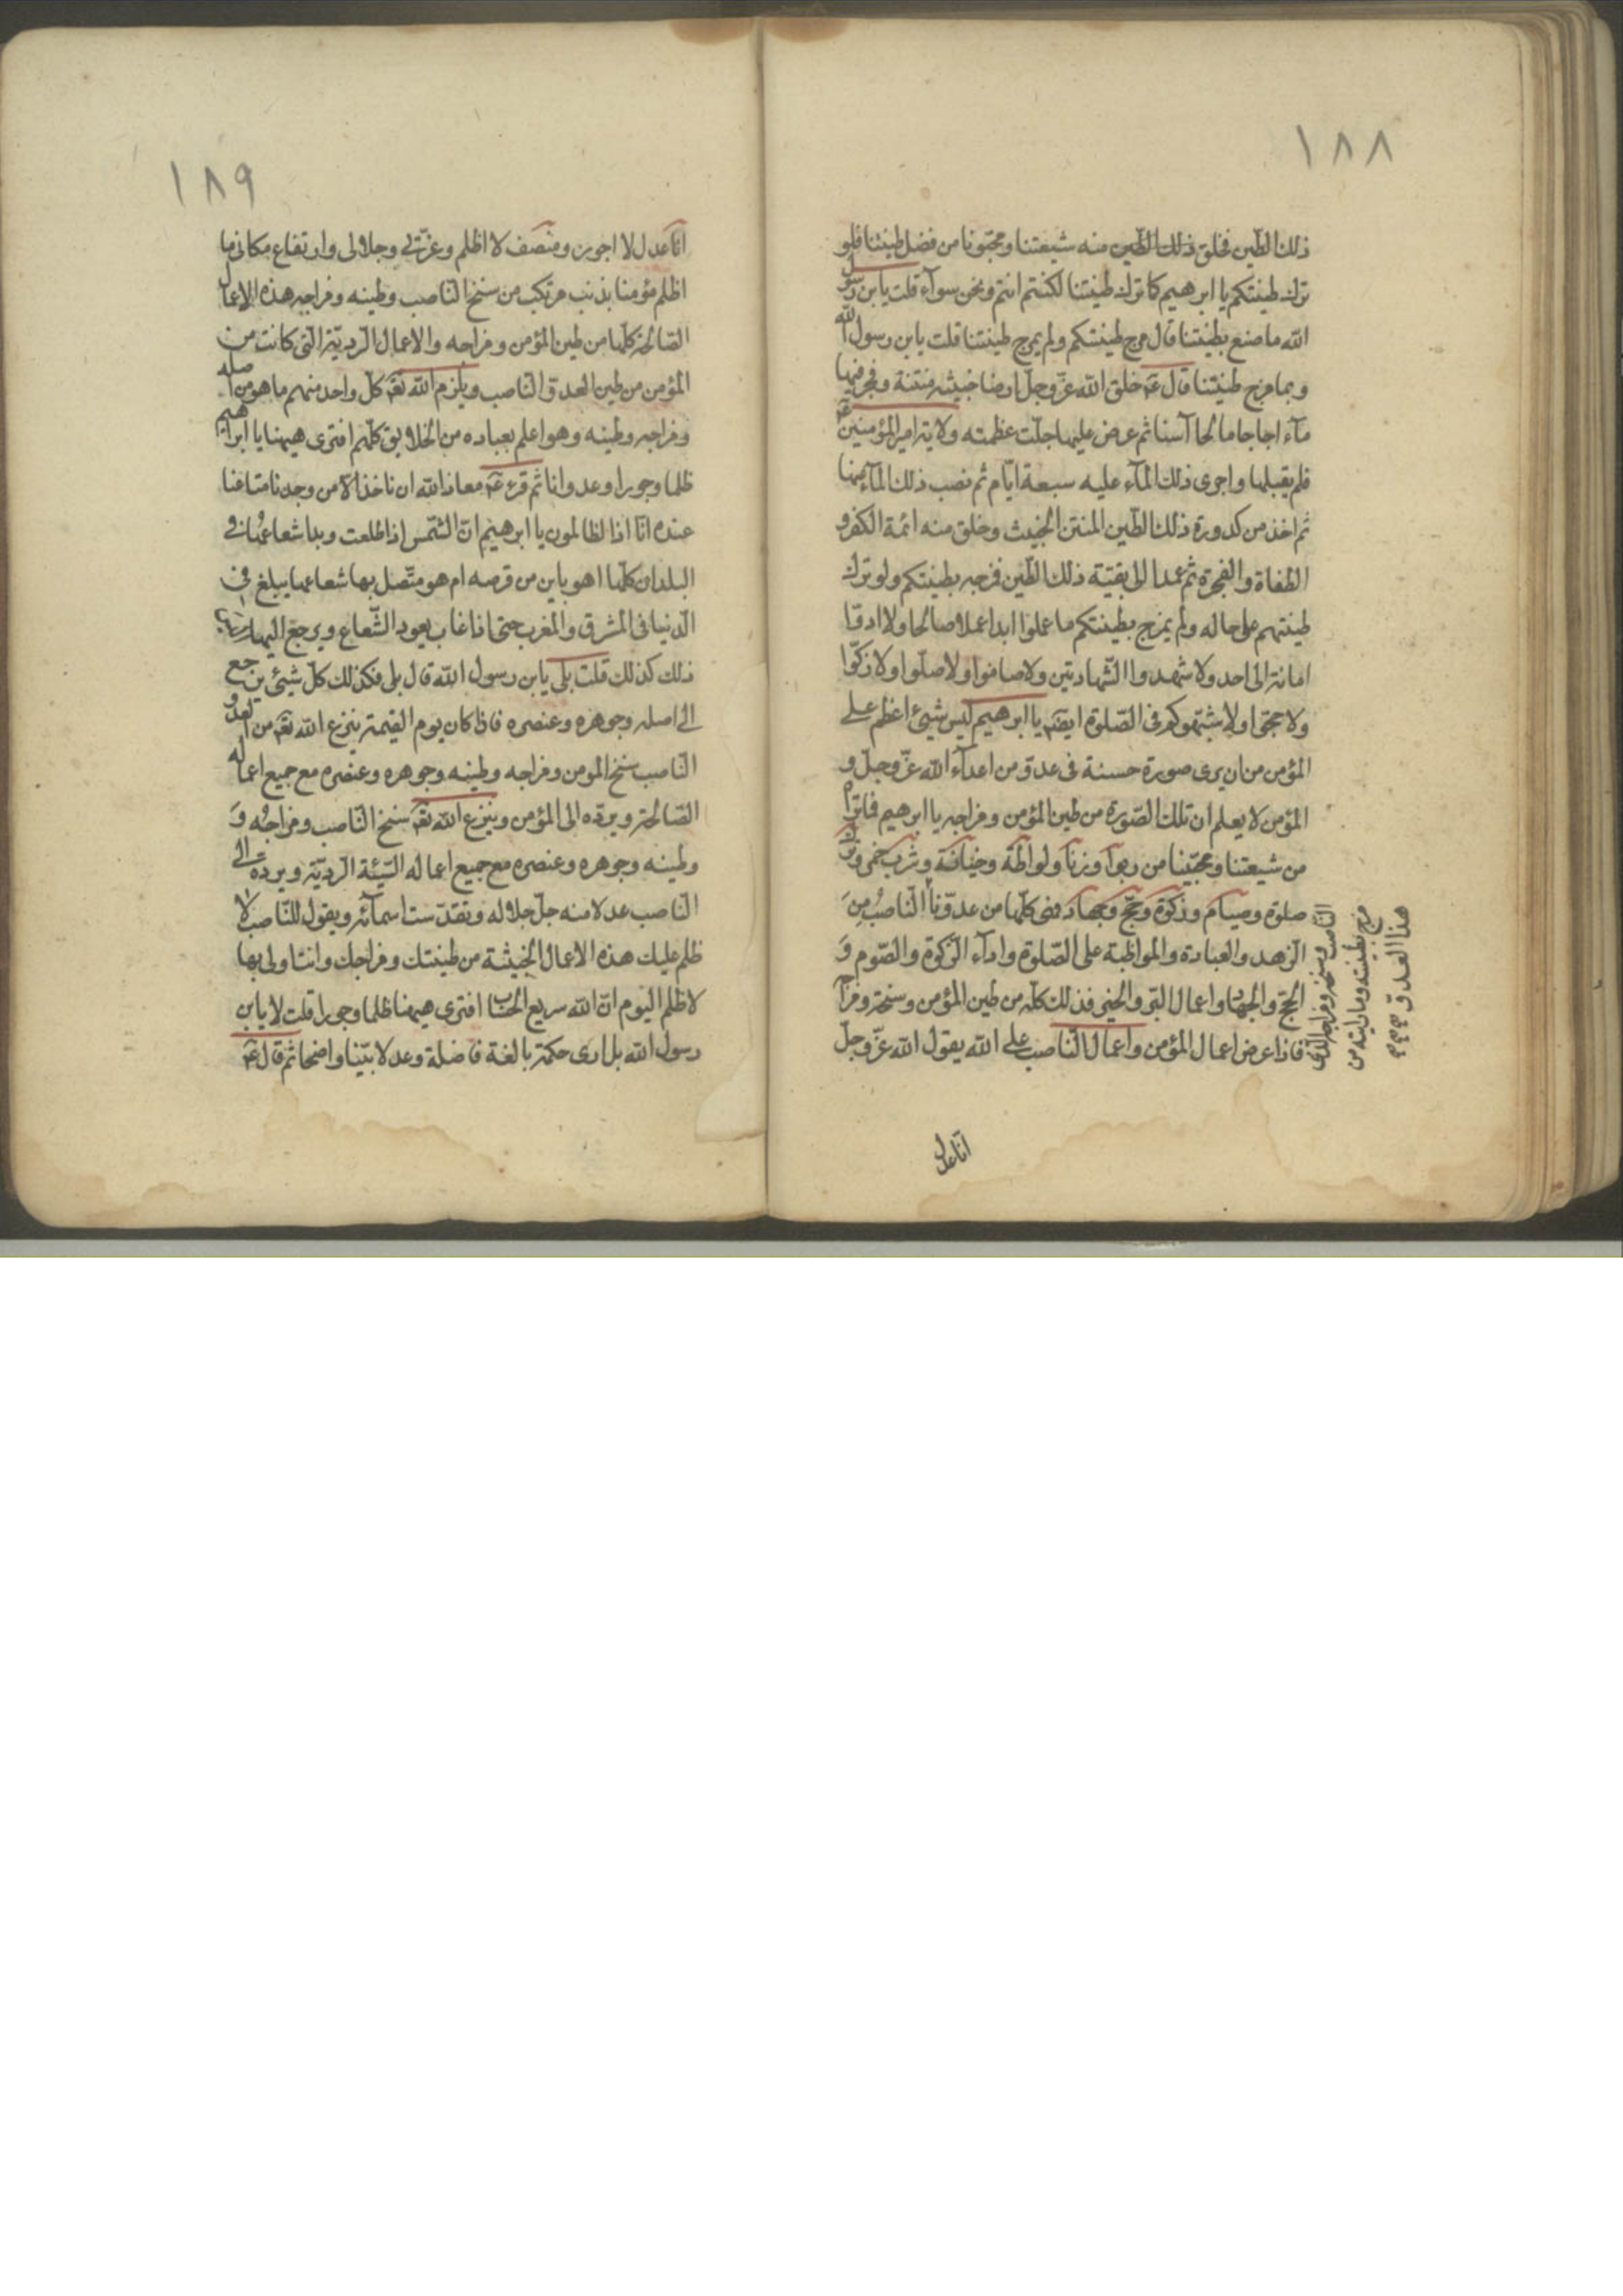 ١٨٨
ذلك الطين فخلق ذلك الطين منه شيعتنا ومحبّونا من فضل طينتنا فلو
ترك طينتكم يا ابرهيم كما ترك طينتنا لكنتم انتم ونحن سوآء قلت يابن رسول
الله ما صنع بطينتنا قال مزج طينتكم ولم يمزج طينتنا قلت يابن رسول الله
وبما مزج طينتنا قال عم خلق الله عزّ وجلّ ارضا خبيثه منتنة وفجر فيها
مآء اجاجا مالحا آسنا ثم عرض عليها جلّت عظمته ولاية امير المؤمنين عم
فلم يقبلها واجرى ذلك المآء عليه سبعة ايّام ثم نضب ذلك المآء عنها
ثم اخذ من كدورة ذلك الطّين المنتن الخبيث وخلق منه ائمة الكفر و
الطغاة والفجرة ثم عمد الى بقيّة ذلك الطّين فمزجه بطينتكم ولو ترك
طينتهم على حاله ولم يمزج بطينتكم ما عملوا ابدا عملا صالحا ولا ادّوا
امانة الى احد ولا شهدوا الشّهادتين ولا صاموا ولا صلّوا ولا زكّوا
ولا حجّوا ولا شبّهوكم فى الصّلوة ايضا يا ابرهيم ليس شيئ اعظم على
المؤمن من ان يرى صورة حسنة فى عدوّ من اعدآء الله عزّ وجلّ و
المؤمن لا يعلم ان تلك الصّورة من طين المؤمن ومزاجه يا ابرهيم فماتراه
من شيعتنا ومحبّينا من ربوآ وزنآ ولواطة وخيانة وشرب خمر وترك
صلوة وصيام وزكوة وحجّ وجهاد فهى كلّها من عدوّنا النّاصب من
الزهد والعبادة والمواظبة على الصّلوة وادآء الزّكوة والصّوم و
الحجّ والجهاد واعمال البرّ والخير فذلك كلّه من طين المؤمن وسنخه ومزاجه
فاذا عرض اعمال المؤمن واعمال النّاصب على الله يقول الله عزّ وجلّ
النّاصب وسنخه ومزاجه الّذى
مزج بطينته وما رايته من
هذا العدوّ
انا عدل
١٨٩
انا عدل لا اجور ومنصف لا اظلم وعزّتى وجلالى وارتفاع مكانى ما
اظلم مؤمنا بذنب مرتكب من سنخ النّاصب وطينه ومزاجه هذه الاعمال
الصّالحة كلّها من طين المؤمن ومزاجه والاعمال الرّديّة الّتى كانت من
المؤمن من طين العدوّ النّاصب ويلزم الله تعَ كلّ واحد منهم ما هو من اصله
ومزاجه وطينه وهو اعلم بعباده من الخلايق كلّهم افترى هيهنا يا ابرهيم
ظلما وجورا وعدوانا ثم قرء عم معاذ الله ان ناخذ الّا من وجدنا متاعنا
عنده انّا اذا لظالمون يا ابرهيم انّ الشّمس اذا طلعت وبدا شعاعها فى
البلدان كلّها اهو باين من قرصه ام هو متّصل بها شعاعها يبلغ فى
الدّنيا فى المشرق والمغرب حتى اذا غاب يعود الشّعاع ويرجع اليها
ذلك كذلك قلت بلى يابن رسول الله قال بلى فكذلك كلّ شيئ يرجع
الى اصله وجوهره وعنصره فاذا كان يوم القيمة ينزع الله تعَ من العدو
النّاصب سنخ المومن ومزاجه وطينه وجوهره وعنصره مع جميع اعماله
الصّالحة ويردّه الى المؤمن وينزع الله تعَ سنخ النّاصب ومزاجه و
وطينه وجوهره وعنصره مع جميع اعماله السّيّئة الرّديّة ويردّه الى
النّاصب عدلا منه جلّ جلاله وتقدّست اسمآئه ويقول للنّاصب لا
ظلم عليك هذه الاعمال الخبيثة من طينتك ومزاجك وانت اولى بها
لا ظلم اليوم انّ الله سريع الحساب افترى هيهنا ظلما وجورا قلت لا يابن
رسول الله بل ارى حكمة بالغة فاضلة وعدلا بيّنا واضحا ثم قال عم